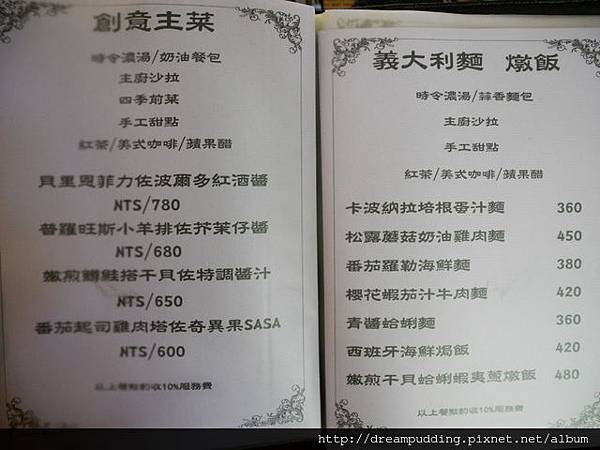 創意主菜
時令濃湯/奶油餐包
主廚沙拉
四季前菜
手工甜點
紅茶/美式咖啡/蘋果醋
貝里恩菲力佐波爾多紅酒醬
NTS/780
普羅旺斯小羊排佐芥茉仔醬
NTS/680
嫩煎鱒鮭搭干貝佐特調醬汁
NTS/650
番茄起司雞肉塔佐奇異果SASA
NTS/600
以上餐點酌收10%服務費
義大利麵 燉飯
時令濃湯/蒜香麵包
主廚沙拉
手工甜點
紅茶/美式咖啡/蘋果醋
卡波納拉培根蛋汁麵 360
松露蘑菇奶油雞肉麵 450
番茄羅勒海鮮麵 380
櫻花蝦茄汁牛肉麵 420
青醬蛤蜊麵 360
西班牙海鮮焗飯 420
嫩煎干貝蛤蜊蝦夷蔥燉飯 480
以上餐點酌收10%服務費
http://dreampudding.pixnet.net/album